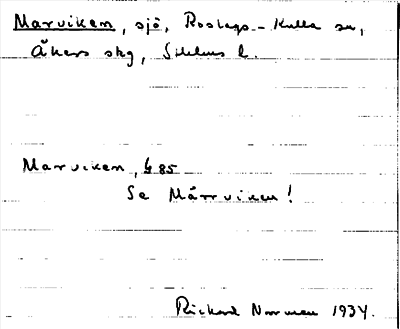 Marviken, sjö, Roslags-Kulla sn,
Åkers skg, Sthlms l.
Marviken, G 85
Se Märrviken!
Richard Norrman 1934.